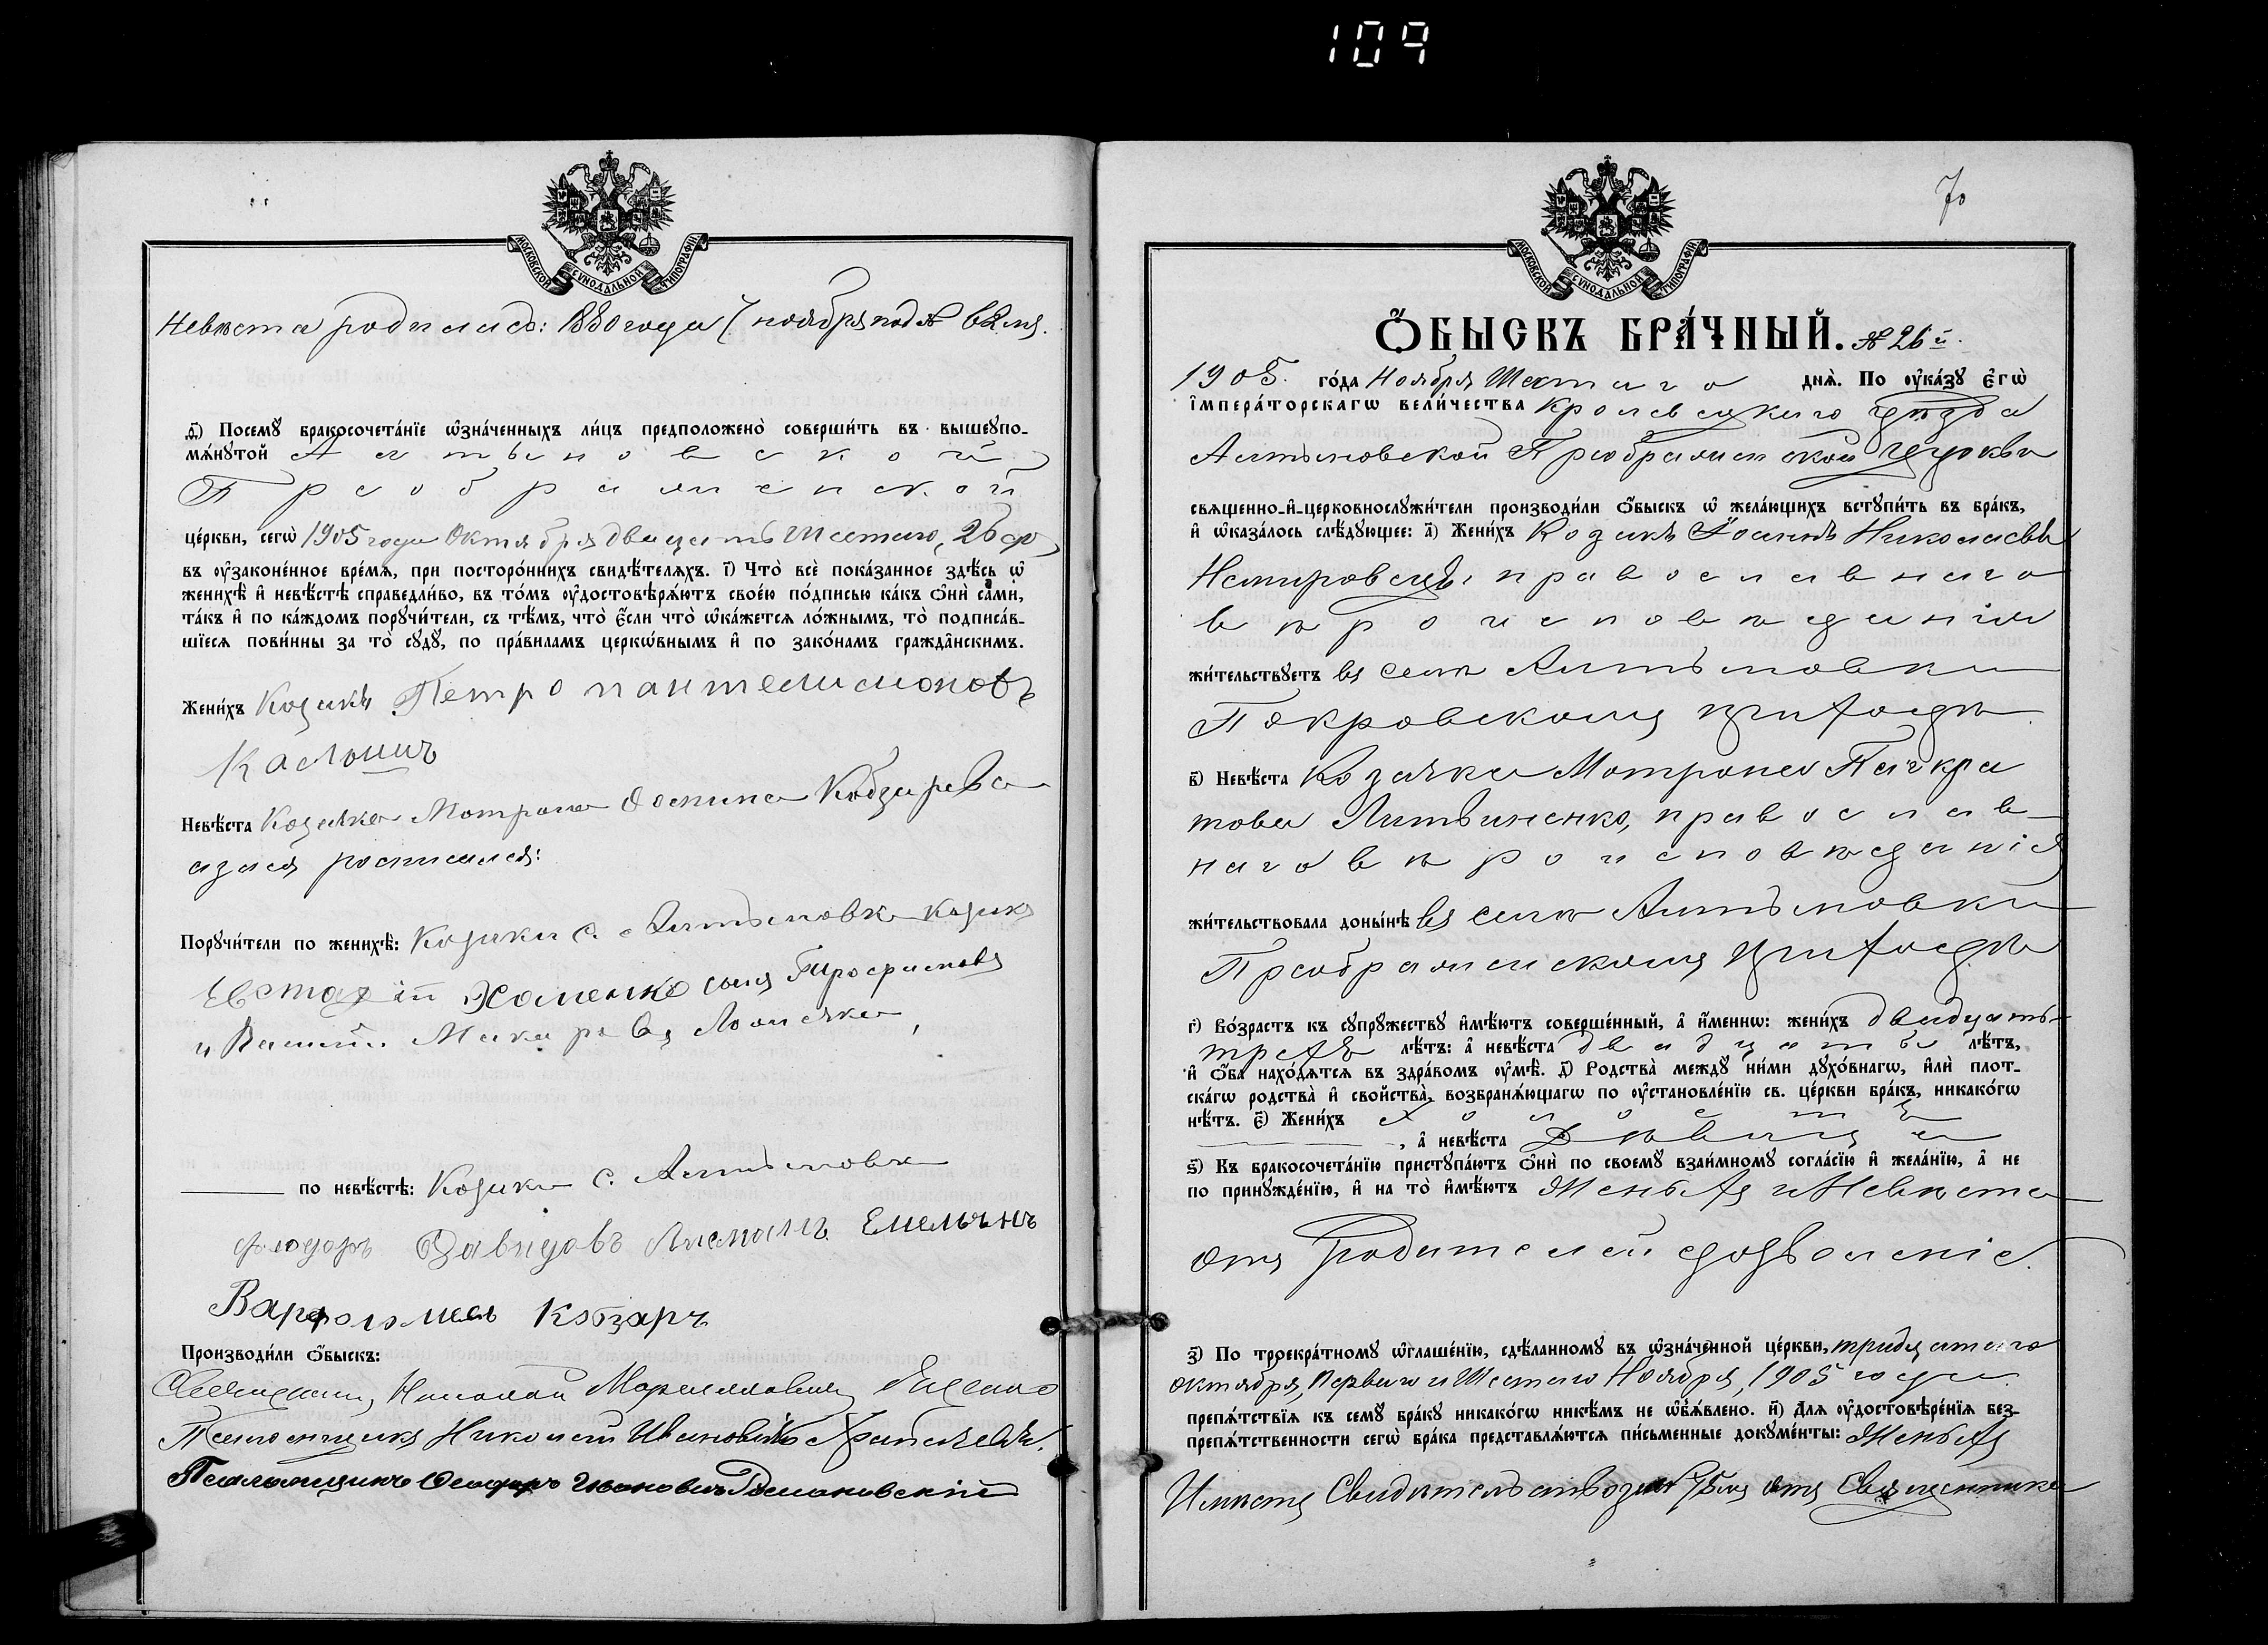 109
МОСКОВСКОЙ СѴНОДАЛЬНОЙ ТИПОГРАФІИ
Невѣста родилась: 1880 года 7 ноября под №
д҃і) Посемꙋ̀ бракосочета́нїе ѡ҆зна́ченныхъ ли́цъ предположено̀ соверши́ть въ вышеꙋпо-
мѧ́нꙋтой Алтыновской
Преображенской
це́ркви, сегѡ̀ 1905 года Октября двадцать Шестаго, 26
въ оу҆зако́ненное вре́мѧ, при посторо́ннихъ свидѣ́телѧхъ. і҃) Что̀ всѐ пока́занное здѣ́сь ѡ҆
женихѣ̀ и҆ невѣ́стѣ справедли́во, въ то́мъ оу҆достовѣрѧ́ютъ свое́ю по́дписью ка́къ ѻ҆нѝ са́ми,
та́къ и҆ по ка́ждомъ порꙋчи́тели, съ тѣ́мъ, что̀ є҆́сли что̀ ѡ҆ка́жетсѧ ло́жнымъ, то̀ подписа́в-
шїесѧ пови́нны за то̀ сꙋдꙋ̀, по пра́виламъ церко́внымъ и҆ по зако́намъ гражда́нскимъ.
Жени́хъ Козакъ Петро пантелимоновъ
Невѣ́ста Козачка Мотрона Осипна Кобзарева
росписался:
Порꙋчи́тели по женихѣ̀: Козаки с. Алтыновки Козакъ
Евстафій Хоменко сынъ
и Василій Макаровъ
по невѣ́стѣ: Козаки с. Алтыновки
Давидовъ Емельянъ
Варфоломей Кобзарь
Производи́ли ѻ҆́быскъ:
Священникъ Николай
Псаломщикъ Николай Ивановичъ
Псаломщикъ Феодоръ Ивановичъ Романовскій
70
МОСКОВСКОЙ СѴНОДАЛЬНОЙ ТИПОГРАФІИ
Ѻ҆́БЫСКЪ БРА́ЧНЫЙ. № 26й.
1905. го́да Ноября Шестаго днѧ̀. По оу҆ка́зꙋ Є҆гѡ̀
і҆мпера́торскагѡ вели́чества Кролевецкаго уѣзда
Алтыновской Преображенской Церкви
свѧщенно-и҆-церковнослꙋжи́тели производи́ли ѻ҆́быскъ ѡ҆ жела́ющихъ встꙋпи́ть въ бра́къ,
и҆ ѡ҆каза́лось слѣ́дꙋющее: а҃) Жени́хъ Козакъ Іоаннъ Николаевъ
Немировецъ, православнаго
вѣроисповѣданія
жи́тельствꙋетъ въ селѣ Алтыновки
Покровскомъ приходѣ
в҃) Невѣ́ста Козачка Мотрона Панкра
това Литвиненко, православ-
наго вѣроисповѣданія
жи́тельствовала доны́нѣ въ селѣ Алтыновки
Преображенскомъ приходѣ
г҃) Во́зрастъ къ сꙋпрꙋ́жествꙋ и҆мѣ́ютъ соверше́нный, а҆ и҆́меннѡ: жени́хъ двадцать
трехъ лѣ́тъ: а҆ невѣ́ста двадцати лѣ́тъ,
и҆ ѻ҆́ба нахо́дѧтсѧ въ здра́вомъ оу҆мѣ̀. д҃) Родства̀ междꙋ ни́ми дꙋхо́внагѡ, и҆лѝ плот-
ска́гѡ родства̀ и҆ свойства̀, возбранѧ́ющагѡ по оу҆становле́нїю св. це́ркви бра́къ, никако́гѡ
нѣ́тъ. є҃) Жени́хъ холостъ
, а҆ невѣ́ста Дѣвица
ѕ҃) Къ бракосочета́нїю пристꙋпа́ютъ ѻ҆нѝ по своемꙋ̀ взаи́мномꙋ согла́сїю и҆ жела́нїю, а҆ не
по принꙋжде́нїю, и҆ на то̀ и҆мѣ́ютъ Женихъ и Невѣста
отъ Родителей дозволеніе.
з҃) По троекра́тномꙋ ѡ҆глаше́нїю, сдѣ́ланномꙋ въ ѡ҆зна́ченной це́ркви, тридцатаго
октября, Перваго и Шестаго Ноября, 1905 года.
препѧ́тствїѧ къ семꙋ̀ бра́кꙋ никако́гѡ никѣ́мъ не ѡ҆б̾ѧ́влено. и҃) Длѧ̀ оу҆достовѣре́нїѧ без-
препѧ́тственности сегѡ̀ бра́ка представлѧ́ютсѧ пи́сьменные докꙋме́нты: Женихъ
Имѣетъ Свидетельство за № отъ Священника